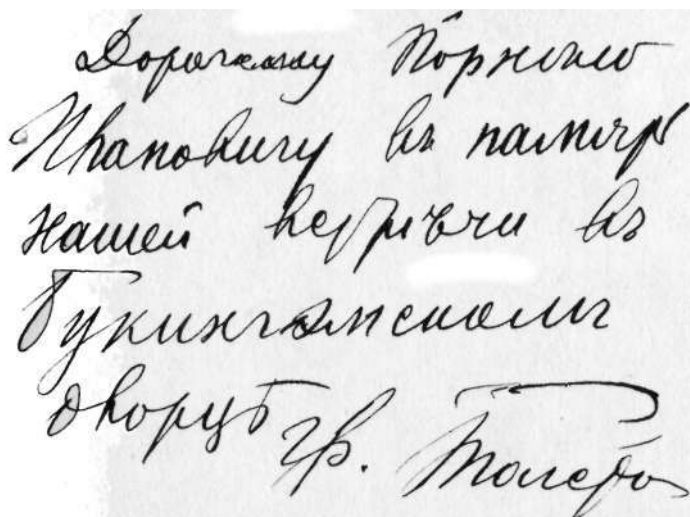 Дорогому Корнѣю
Ивановичу въ память
нашей встрѣчи въ
Букингэмскомъ
дворцѣ
Гр. Толстой